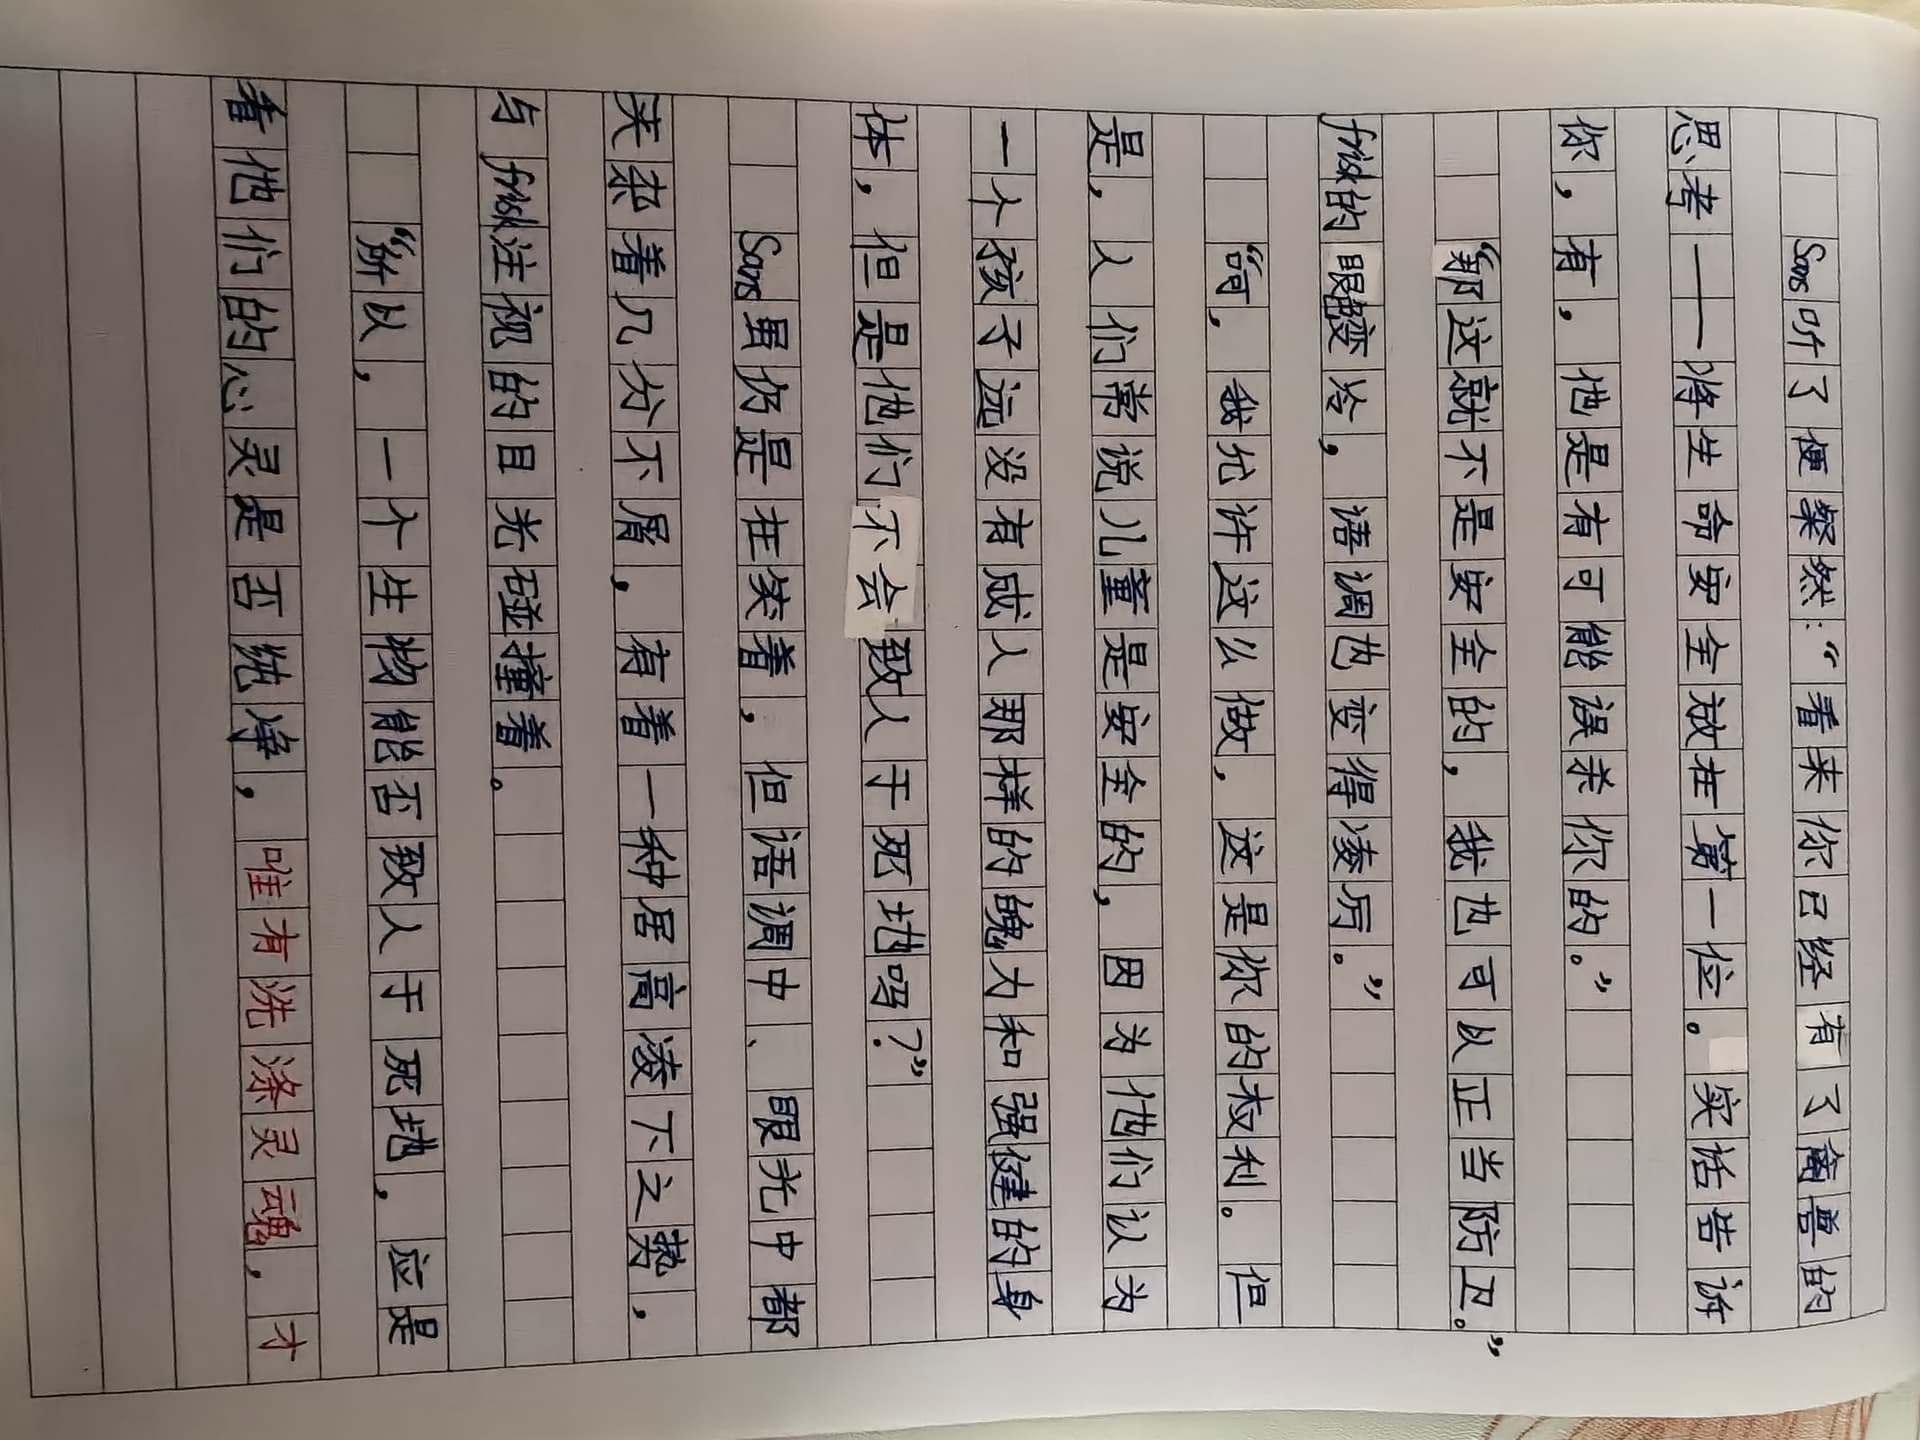 Sans听了便粲然：“看来你已经有了禽兽的
思考——将生命安全放在第一位。实话告诉
你，有，他是有可能误杀你的。”
“那这就不是安全的，我也可以正当防卫。”
frisk的眼瞪变冷，语调也变得凌厉。”
“呵，我允许这么做，这是你的权利。但
是，人们常说儿童是安全的，因为他们认为
一个孩子远没有成人那样的魄力和强健的身
体，但是他们不会致人于死地吗？”
Sans虽仍是在笑着，但语调中、眼光中都
夹杂着几分不屑，有着一种居高凌下之势，
与frisk注视的目光碰撞着。
“所以，一个生物能否致人于死地，应是
看他们的心灵是否纯净，唯有洗涤灵魂，才